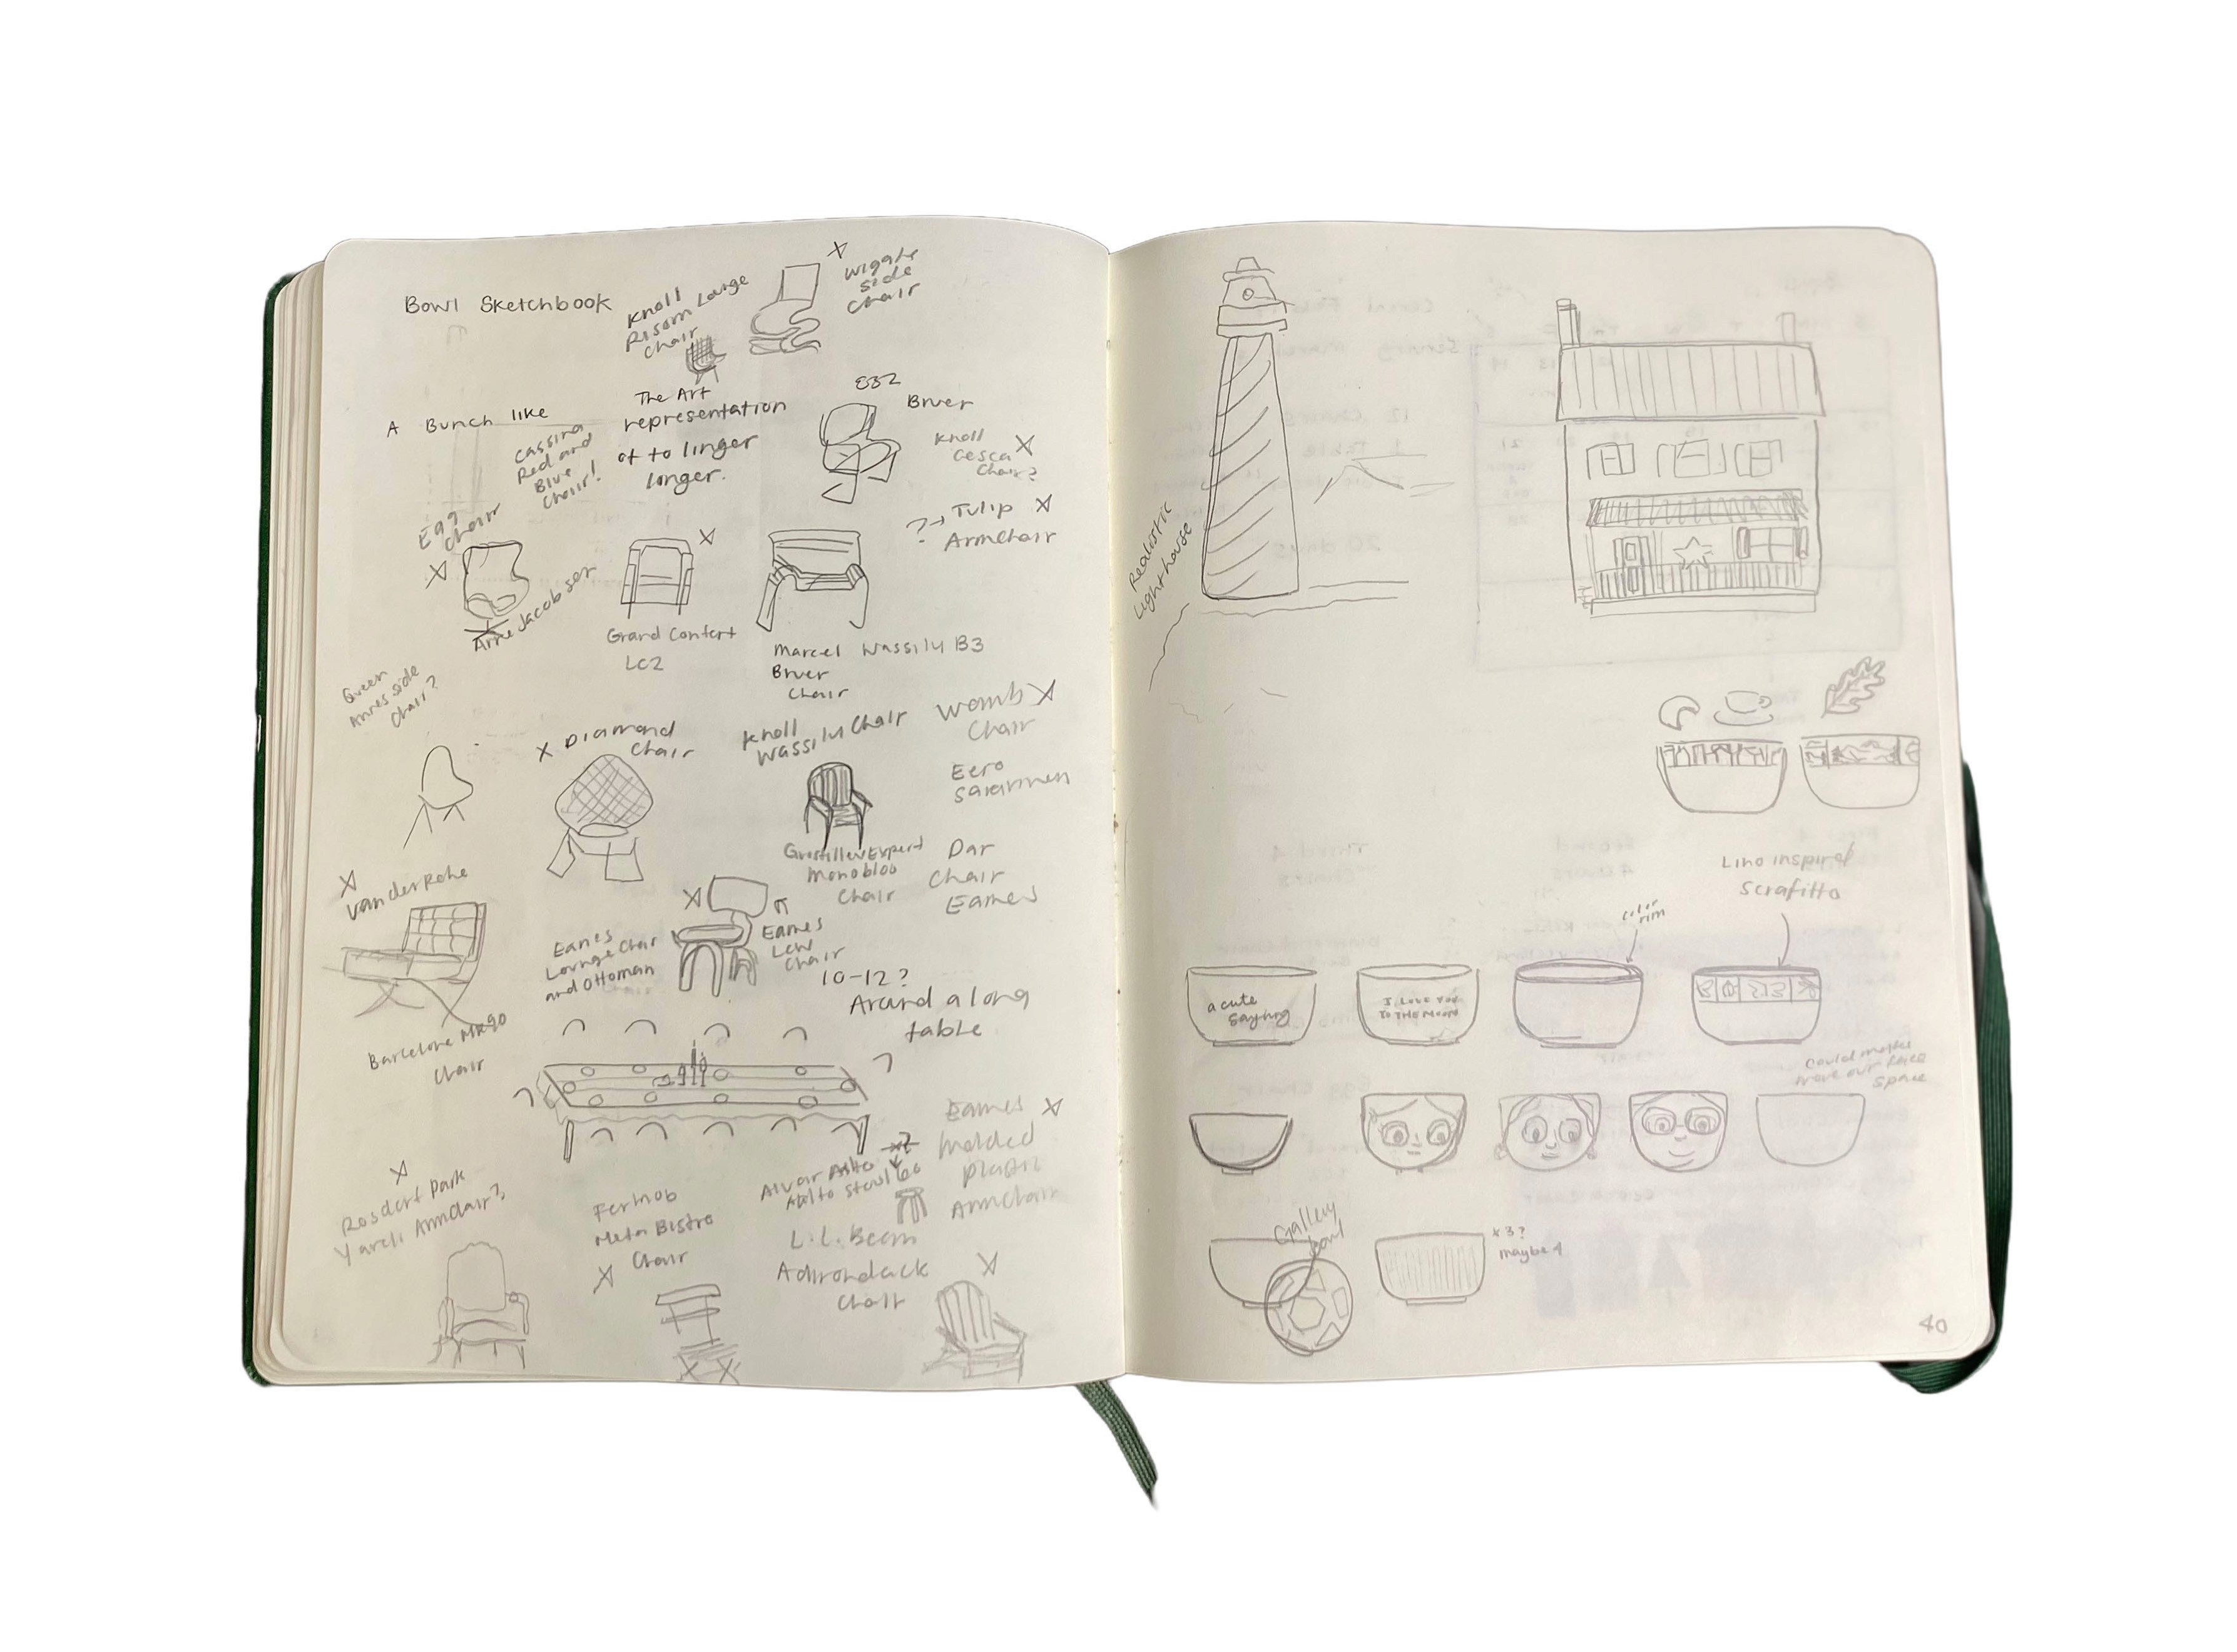 Bowl Sketchbook
Knoll
Risom Lounge
Chair
Wiggle
side
Chair
A Bunch like
The Art
representation
of to linger
longer.
Cassina
Red and
Blue
Chair!
B32
Bruer
Knoll
Cesca
Chair?
Egg
Chair
Arne Jacobsen
? → Tulip
Armchair
Grand Confort
LC2
Marcel Wassily B3
Bruer
Chair
Queen
Annes side
Chair?
X Diamond
Chair
Knoll
Wassily Chair
Womb
Chair
Eero
Grosfillex Expert
Monobloc
Chair
Dar
Chair
Eames
Van der Rohe
Barcelona MR90
Chair
Eames
Lounge Chair
and Ottoman
Eames
LCW
Chair
10-12?
Around a long
table
Park
Armchair?
Fermob
Bistro
Chair
Alvar
Stool 60
Eames
Molded
Plastic
Armchair
L.L. Bean
Adirondack
Chair
Realistic
Lighthouse
Lino inspired
Scrafitto
color
rim
a cute
saying
I Love You
To The Moon
Could maybe
our
space
Gallery
bowl
x3?
maybe 4
40